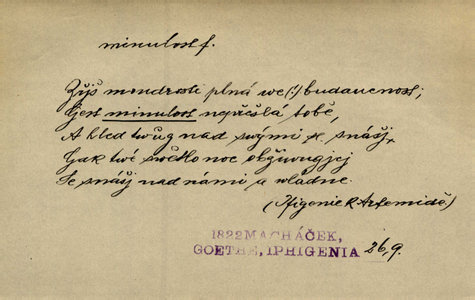 minulost f.
Zřjš maudrosti plná we(!) budaucnost;
Gest minulost nepřešlá tobě,
A hled twůg nad swými se snášj,
Gak twé swětlo noc obžiwugjcj
Se snášj nad námi a wládne.
(Ifigenie k Artemidě)
1822 MACHÁČEK,
GOETHE, IPHIGENIA 26,9.